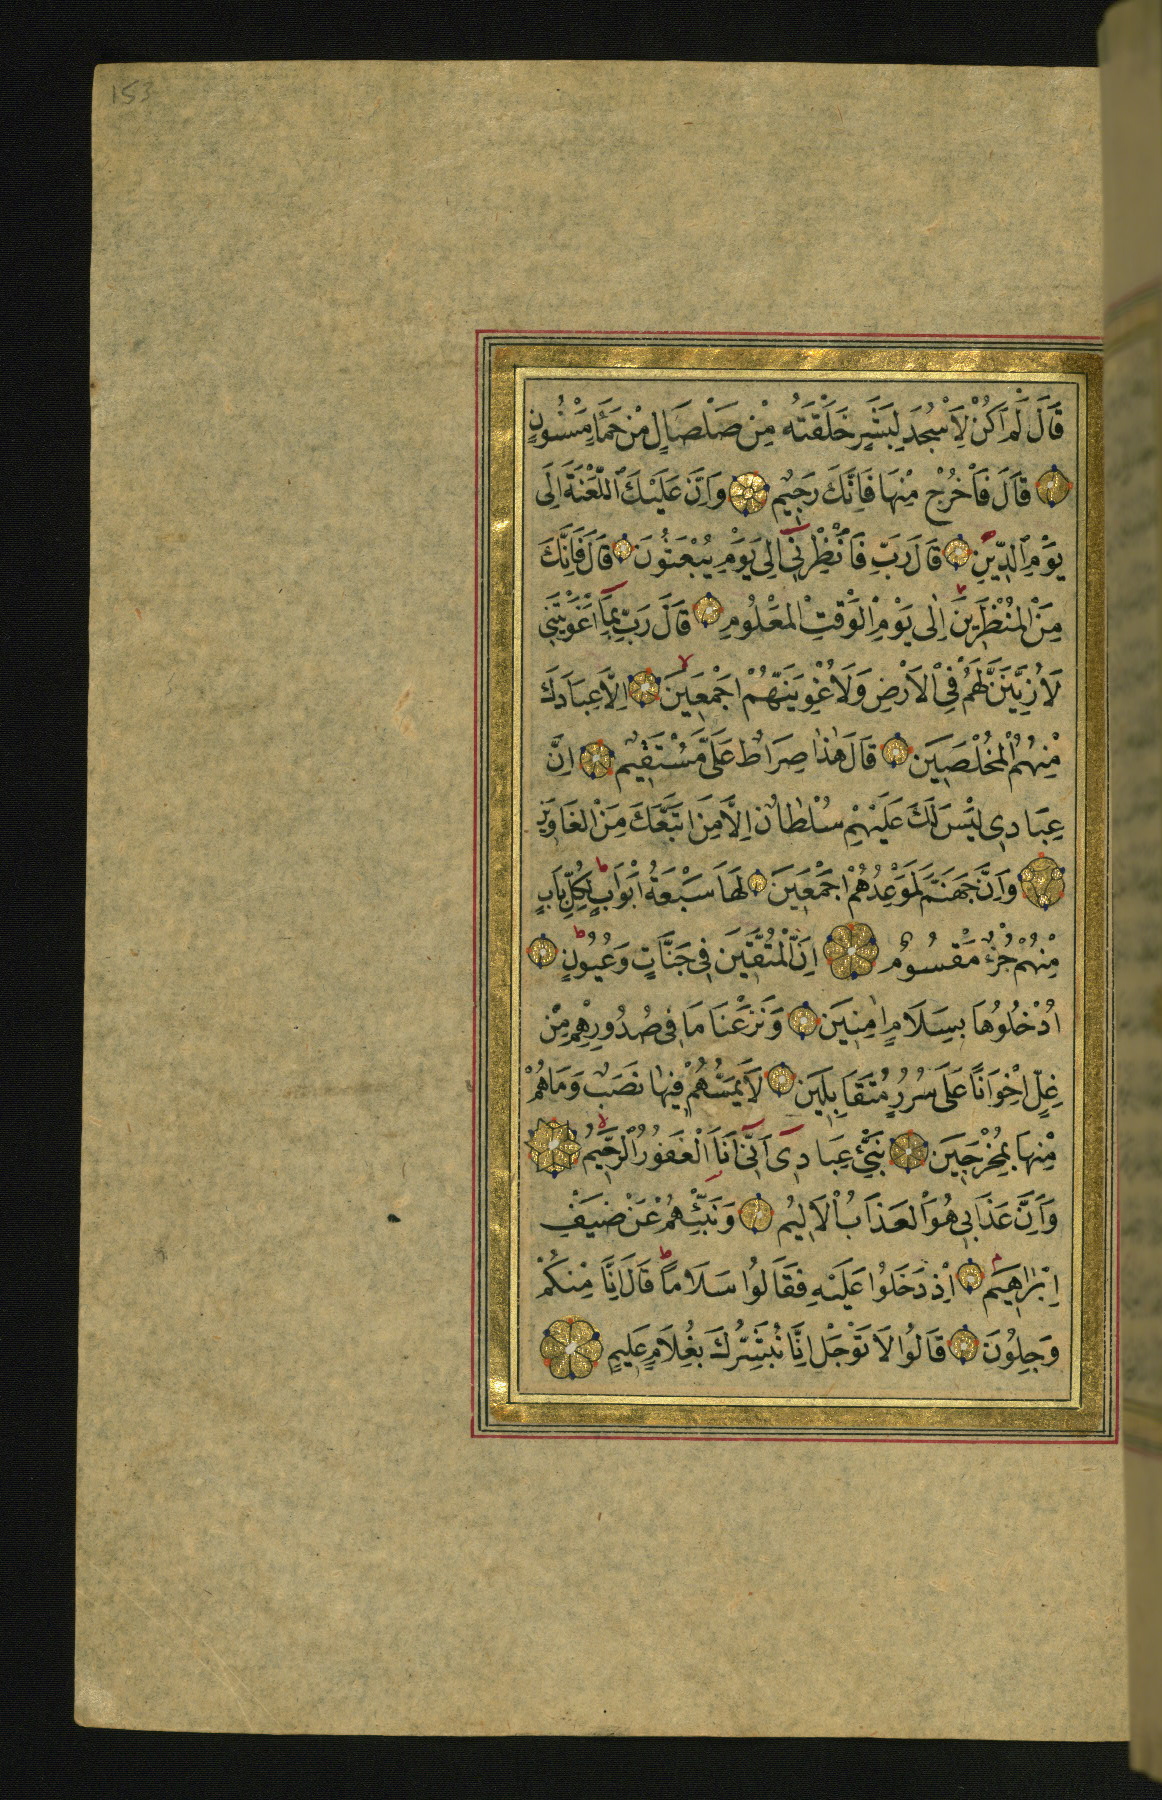 153
قَالَ لَمْ اَكُنْ لِاَسْجُدَ لِبَشَرٍ خَلَقْتَهُ مِنْ صَلْصَالٍ مِنْ حَمَاٍ مَسْنُونٍ
قَالَ فَاخْرُجْ مِنْهَا فَاِنَّكَ رَجِيمٌ وَاِنَّ عَلَيْكَ اللَّعْنَةَ اِلٰى
يَوْمِ الدِّينِ قَالَ رَبِّ فَاَنْظِرْنِي اِلٰى يَوْمِ يُبْعَثُونَ قَالَ فَاِنَّكَ
مِنَ الْمُنْظَرِينَ اِلٰى يَوْمِ الْوَقْتِ الْمَعْلُومِ قَالَ رَبِّ بِمَا اَغْوَيْتَنِي
لَاُزَيِّنَنَّ لَهُمْ فِي الْاَرْضِ وَلَاُغْوِيَنَّهُمْ اَجْمَعِينَ اِلَّا عِبَادَكَ
مِنْهُمُ الْمُخْلَصِينَ قَالَ هٰذَا صِرَاطٌ عَلَيَّ مُسْتَقِيمٌ اِنَّ
عِبَادِي لَيْسَ لَكَ عَلَيْهِمْ سُلْطَانٌ اِلَّا مَنِ اتَّبَعَكَ مِنَ الْغَاوِينَ
وَاِنَّ جَهَنَّمَ لَمَوْعِدُهُمْ اَجْمَعِينَ لَهَا سَبْعَةُ اَبْوَابٍ لِكُلِّ بَابٍ
مِنْهُمْ جُزْءٌ مَقْسُومٌ اِنَّ الْمُتَّقِينَ فِي جَنَّاتٍ وَعُيُونٍ
اُدْخُلُوهَا بِسَلَامٍ اٰمِنِينَ وَنَزَعْنَا مَا فِي صُدُورِهِمْ مِنْ
غِلٍّ اِخْوَانًا عَلٰى سُرُرٍ مُتَقَابِلِينَ لَا يَمَسُّهُمْ فِيهَا نَصَبٌ وَمَا هُمْ
مِنْهَا بِمُخْرَجِينَ نَبِّئْ عِبَادِي اَنِّي اَنَا الْغَفُورُ الرَّحِيمُ
وَاَنَّ عَذَابِي هُوَ الْعَذَابُ الْاَلِيمُ وَنَبِّئْهُمْ عَنْ ضَيْفِ
اِبْرٰهِيمَ اِذْ دَخَلُوا عَلَيْهِ فَقَالُوا سَلَامًا قَالَ اِنَّا مِنْكُمْ
وَجِلُونَ قَالُوا لَا تَوْجَلْ اِنَّا نُبَشِّرُكَ بِغُلَامٍ عَلِيمٍ